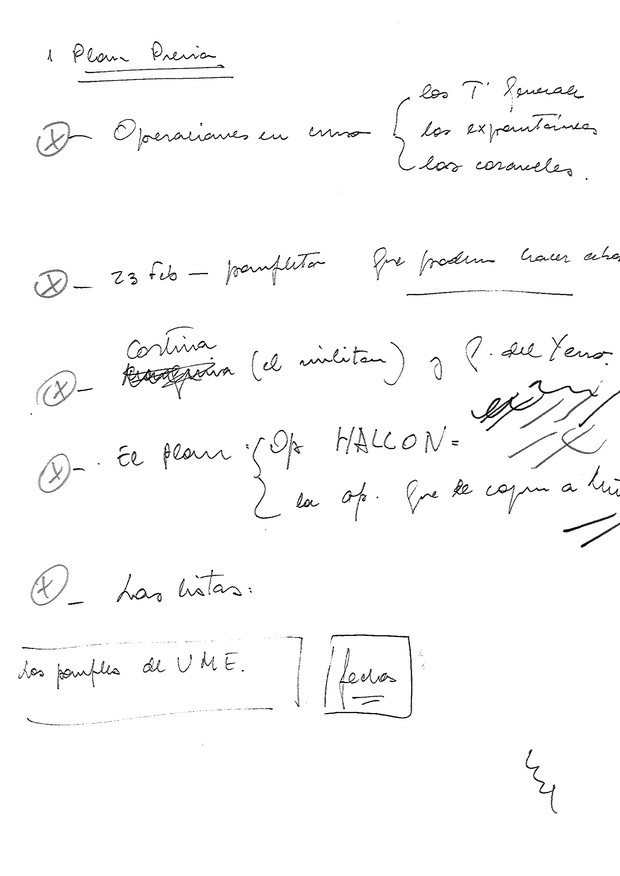 1 Plan Previa
Operaciones en curso
los T' Generale
los expontáneos
los coroneles.
23 Feb — panfleto que podemos hacer
Cortina (el militar) y P. del Yerro.
El plan: Op HALCON =
la op. que se a
Las listas:
Los de UME.
fechas